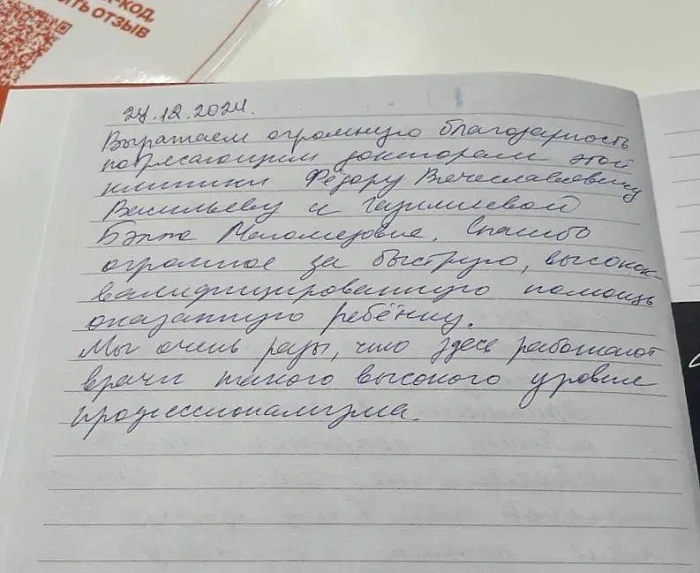 -КОД,
ИТЬ ОТЗЫВ
24.12.2024.
Выражаем огромную благодарность
потрясающим докторам этой
клиники Фёдору Вячеславовичу
Васильеву и
Бэлле Магомедовне. Спасибо
огромное за быструю, высокок-
валифицированную помощь
оказанную ребёнку.
Мы очень рады, что здесь работают
врачи такого высокого уровня
профессионализма.